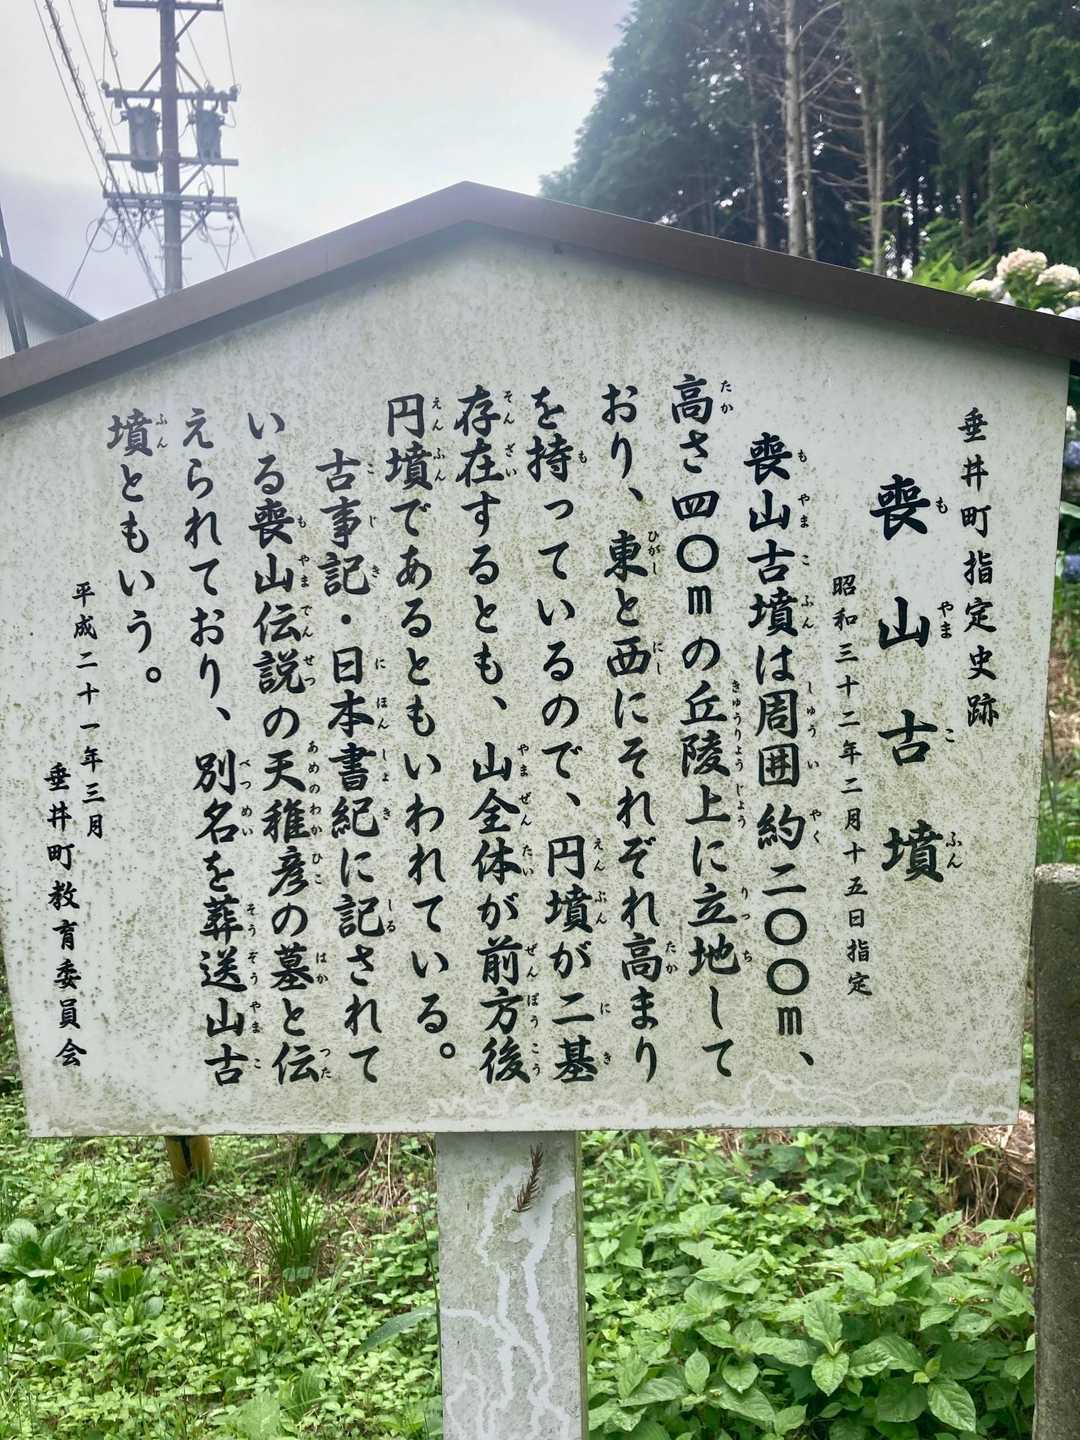 垂井町指定史跡
喪山古墳
昭和三十二年二月十五日指定
喪山古墳は周囲約二〇〇m、
高さ四〇mの丘陵上に立地して
おり、東と西にそれぞれ高まり
を持っているので、円墳が二基
存在するとも、山全体が前方後
円墳であるともいわれている。
古事記・日本書紀に記されて
いる喪山伝説の天稚彦の墓と伝
えられており、別名を葬送山古
墳ともいう。
平成二十一年三月
垂井町教育委員会